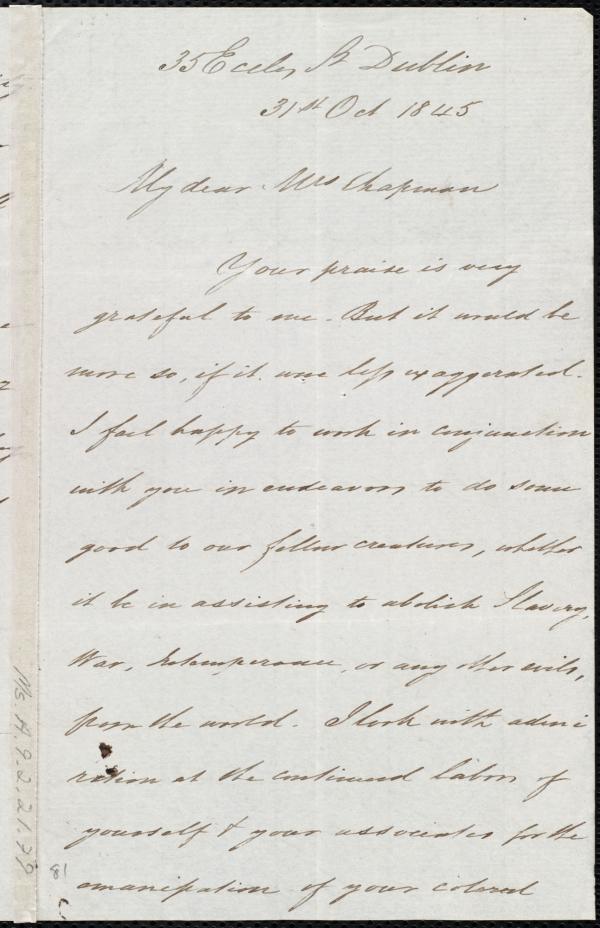 35 Eccles St Dublin
31st Oct 1845
My dear Mrs Chapman
Your praise is very
grateful to me. But it would be
more so, if it were less exaggerated.
I feel happy to work in conjunction
with you in endeavors to do some
good to our fellow creatures, whether
it be in assisting to abolish Slavery,
War, Intemperance, or any other evils,
from the world. I look with admi
ration at the continued labors of
yourself & your associates for the
emancipation of your colored
Ms. A.9.2.21.79
81